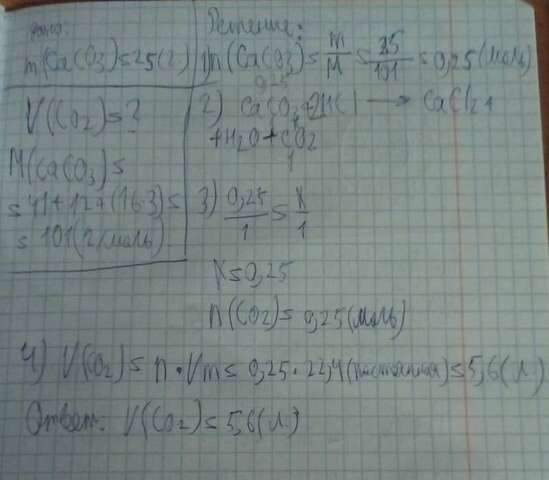 Дано:
m(CaCO3) = 25(г)
V(CO2) = ?
M(CaCO3) =
= 41+12+(16·3) =
= 101(г/моль)
Решение:
1) n(CaCO3) = m/M = 25/101 = 0,25(моль)
0,25
2) CaCO3+2HCl → CaCl2+
+H2O+CO2
1
3) 0,25/1 = x/1
x = 0,25
n(CO2) = 0,25(моль)
4) V(CO2) = n·Vm = 0,25·22,4(постоянная) = 5,6(л)
Ответ: V(CO2) = 5,6(л.)